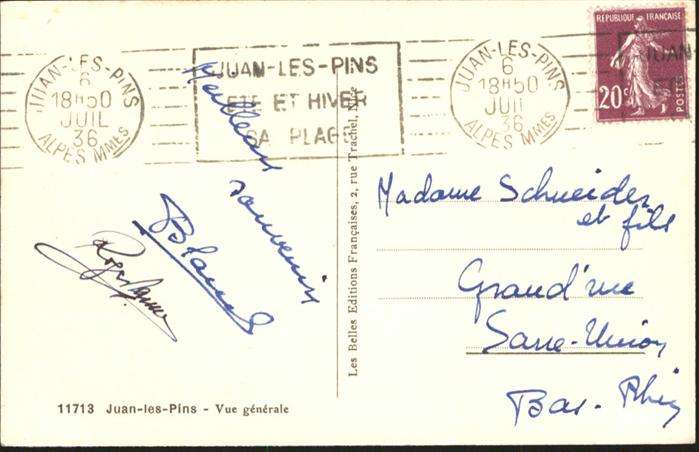 JUAN-LES-PINS
6
18H50
JUIL
36
ALPES MMES
JUAN-LES-PINS
ÉTÉ ET HIVER
SA PLAGE
JUAN-LES-PINS
6
18H50
JUIL
36
ALPES MMES
REPUBLIQUE FRANÇAISE
20c
POSTES
JUAN
Meilleurs
souvenirs
Blanche
Les Belles Editions Françaises, 2, rue Trachel, Nice
Madame Schneider
et fils
Grand'rue
Sarre-Union
Bas-Rhin
11713 Juan-les-Pins - Vue générale